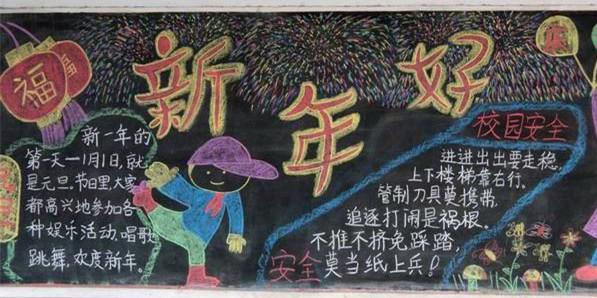 福
新年好
新一年的
第一天一1月1日,就
是元旦.节日里,大家
都高兴地参加各
种娱乐活动,唱歌
跳舞,欢度新年。
校园安全
进进出出要走稳,
上下楼梯靠右行。
管制刀具莫携带,
追逐打闹是祸根。
不推不挤免踩踏,
莫当纸上兵!
安全